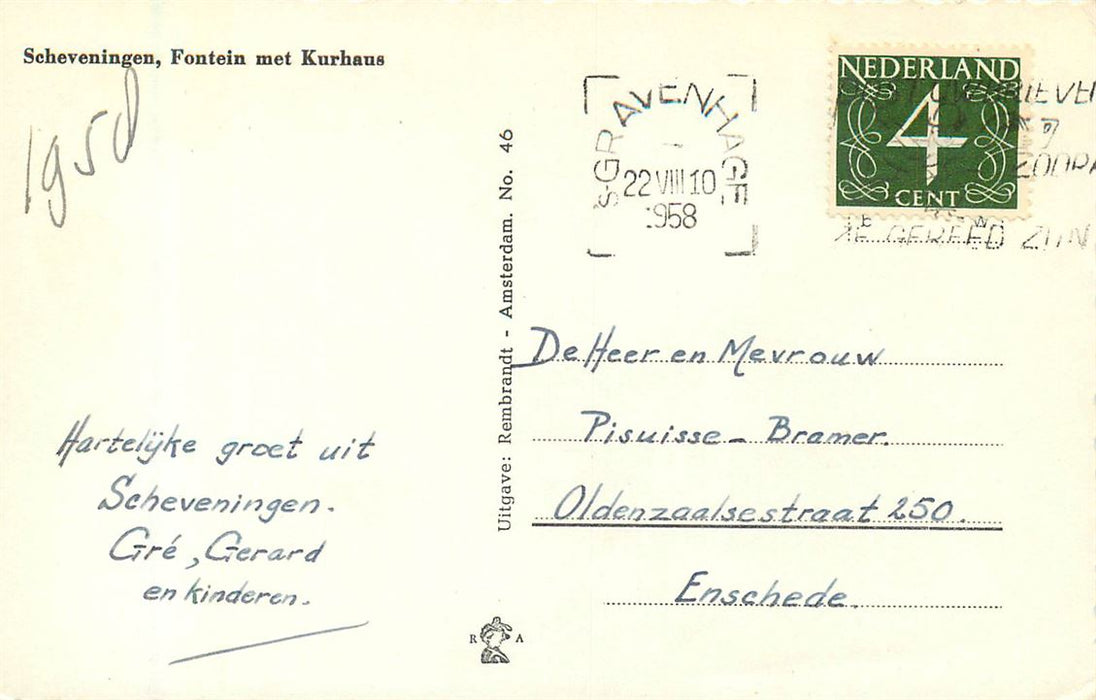 Scheveningen, Fontein met Kurhaus
1958
's-GRAVENHAGE
22 VIII 10
1958
NEDERLAND
4
CENT
ZE GEREED ZIJN
Uitgave: Rembrandt - Amsterdam. No. 46
De Heer en Mevrouw
Pisuisse - Bramer.
Oldenzaalsestraat 250.
Enschede.
Hartelijke groet uit
Scheveningen.
Gré, Gerard
en kinderen.
R A